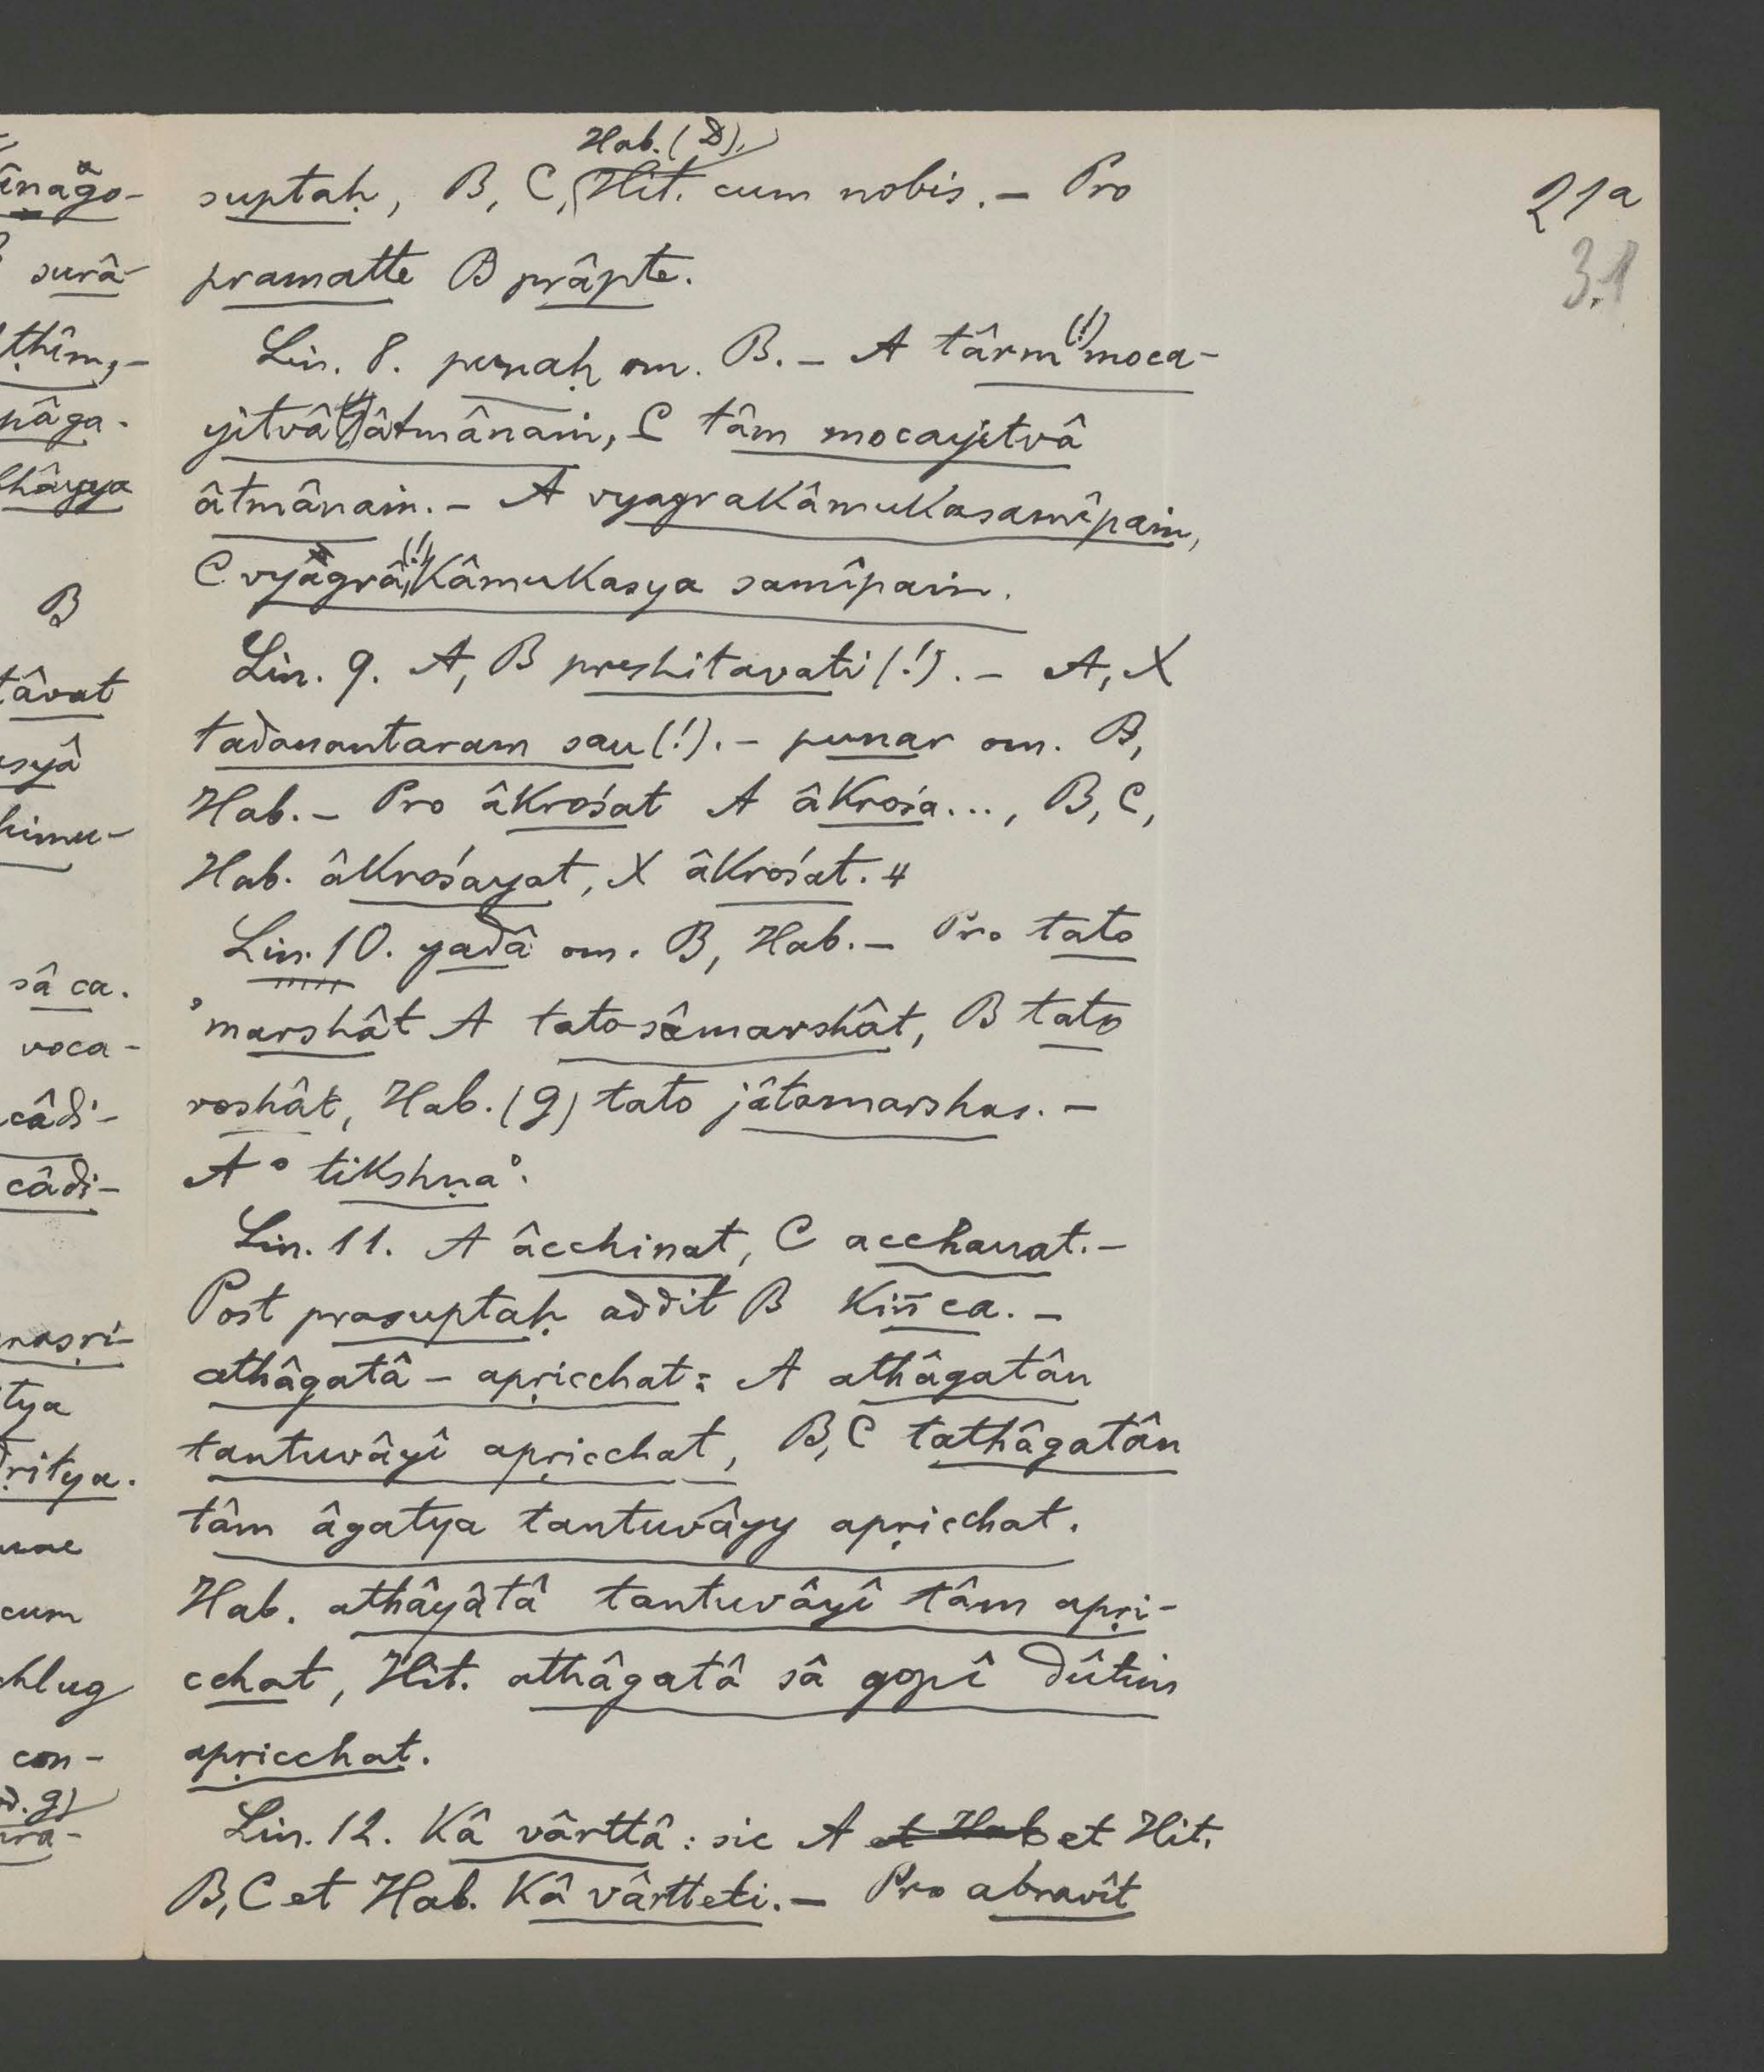 21a
3.1
Hab. (D),
suptaḥ, B, C, Hit. cum nobis. – Pro
pramatte B prâpte.
Lin. 8. punaḥ om. B. – A târm (!) moca-
yitvâ (!) âtmânaṁ, C tâm mocayitvâ
âtmânaṁ. – A vyagrakâmukasamîpaṁ,
C vyagrâ (!) kâmukasya samîpaṁ.
Lin. 9. A, B preshitavati (!). – A, X
tadanantaram sau (!). – punar om. B,
Hab. – Pro âkrośat A âkrośa..., B, C,
Hab. âkrośayat, X âkrośat.
Lin. 10. yadâ om. B, Hab. – Pro tato
'marshât A tato sâmarshât, B tato
roshât, Hab. (g) tato jâtamarshas. –
A ° tikshṇa°.
Lin. 11. A âcchinat, C acchanat. –
Post prasuptaḥ addit B kiñca. –
athâgatâ – apṛicchat: A athâgatân
tantuvâyî apṛicchat, B, C tathâgatân
tâm âgatya tantuvâyy apṛicchat.
Hab. athâyâtâ tantuvâyî tâm apṛi-
cchat, Hit. athâgatâ sâ gopî dûtim
apṛicchat.
Lin. 12. Kâ vârttâ: sic A et Hab et Hit.
B, C et Hab. Kâ vârtteti. – Pro abravît
surâ-
B
tâvat
sâ ca.
voca-
câdi-
câdi-
cum
con-